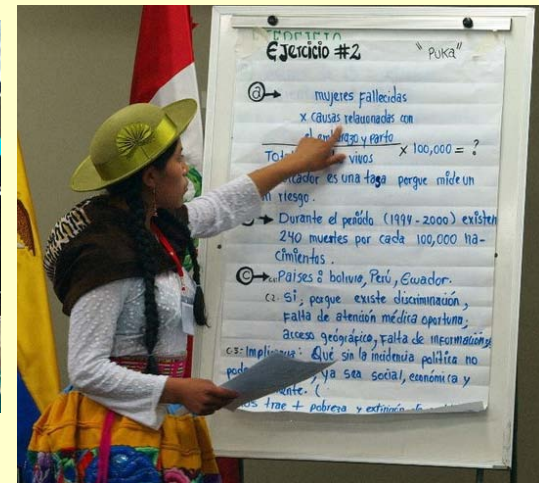 Ejercicio #2 "Puka"
a → mujeres fallecidas
x causas relacionadas con
el embarazo y parto
Tot vivos x 100,000 = ?
cador es una tasa porque mide un
riesgo.
→ Durante el período (1999-2000) existen
240 muertes por cada 100,000 na-
cimientos.
c → c1. Países: bolivia, Perú, Ecuador.
c2. Si, porque existe discriminación,
Falta de atención médica oportuna,
acceso geográfico, falta de información
c-3: Implica Qué sin la incidencia política no
pod ya sea social, económica y
mente. (
trae + pobreza y extinción